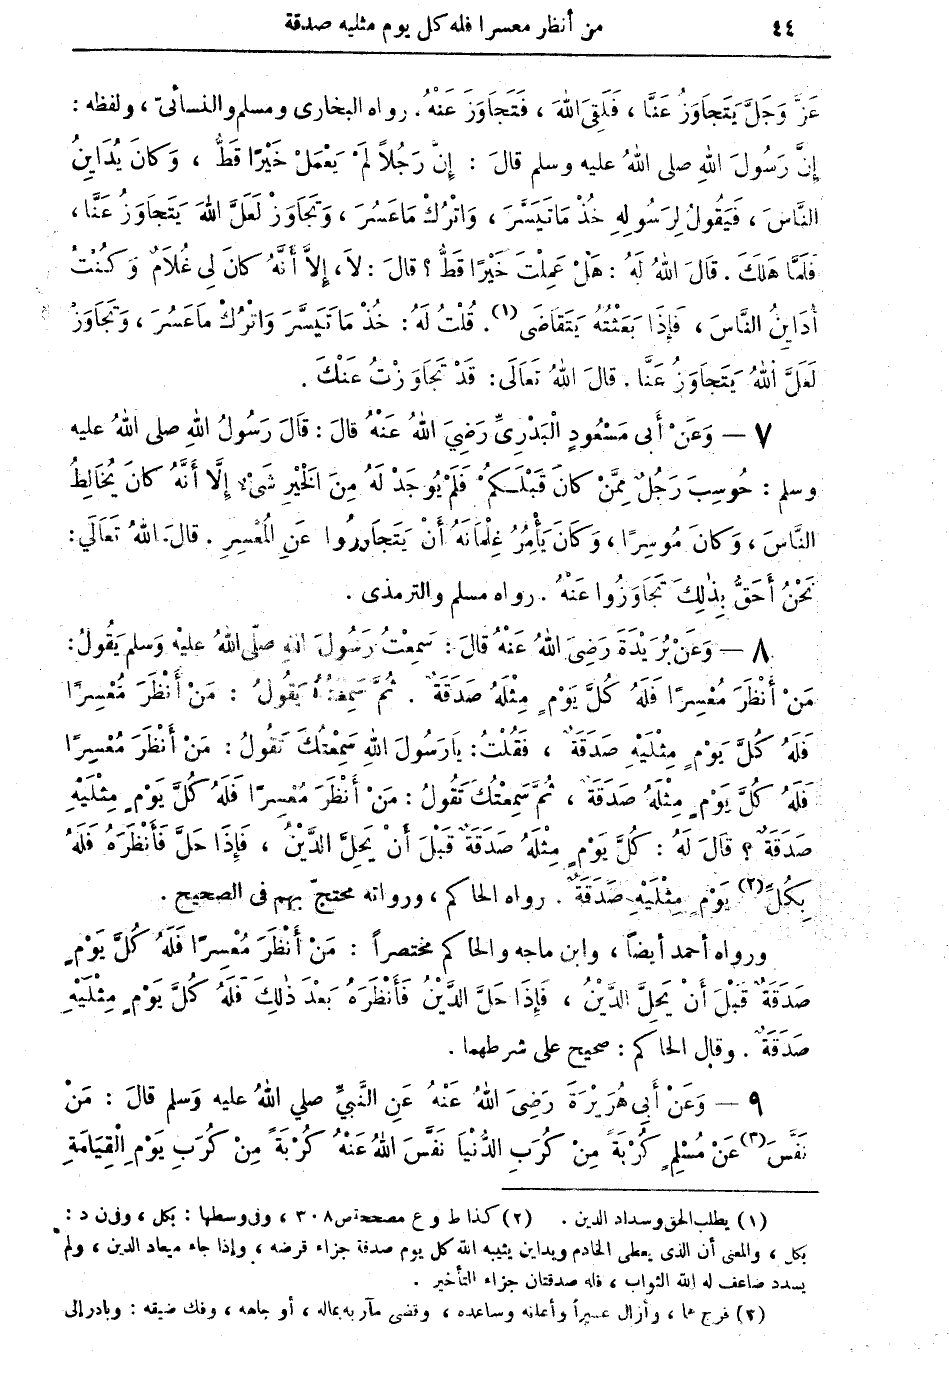 ٤٤ من أنظر معسرا فله كل يوم مثليه صدقة
عَزَّ وَجَلَّ يَتَجَاوَزُ عَنَّا ، فَلَقِىَ اللهَ ، فَتَجَاوَزَ عَنْهُ . رواه البخارى ومسلم والنسائىّ ، ولفظه :
إِنَّ رَسُولَ اللهِ صلى اللهُ عليه وسلم قالَ : إِنَّ رَجُلاً لَمْ يَعْمَلْ خَيْرًا قَطُّ ، وَكانَ يُدَاينُ
النَّاسَ ، فَيَقُولُ لِرَسُولِهِ خُذْ مَا تَيَسَّرَ ، وَاتْرُكْ مَا عَسُرَ ، وَتَجَاوَزْ لَعَلَّ اللهَ يَتَجَاوَزُ عَنَّا ،
فَلَمَّا هَلَكَ . قالَ اللهُ لَهُ : هَلْ عَمِلْتَ خَيْرًا قَطُّ ؟ قالَ : لاَ ، إِلاَّ أَنَّهُ كانَ لِى غُلَامٌ وَكُنْتُ
أُدَايِنُ النَّاسَ ، فَإِذَا بَعَثْتُهُ يَتَقَاضَى (١) . قُلْتُ لَهُ : خُذْ مَا تَيَسَّرَ وَاتْرُكْ مَا عَسُرَ ، وَتَجَاوَزْ
لَعَلَّ اللهُ يَتَجَاوَزُ عَنَّا . قالَ اللهُ تَعَالَى : قَدْ تَجَاوَزْتُ عَنْكَ .
٧ — وَعَنْ أَبى مَسْعُودٍ الْبَدْرِىِّ رَضِيَ اللهُ عَنْهُ قالَ : قَالَ رَسُولُ اللهِ صلى اللهُ عليه
وسلم : حُوسِبَ رَجُلٌ مِمَّنْ كانَ قَبْلَكُمْ فَلَمْ يُوجَدْ لَهُ مِنَ الْخَيْرِ شَىْءٌ إِلَّا أَنَّهُ كانَ يُخَالِطُ
النَّاسَ ، وَكانَ مُوسِرًا ، وَكَانَ يَأْمُرُ غِلْمَانَهُ أَنْ يَتَجَاوَزُوا عَنِ الْمُعْسِرِ . قالَ اللهُ تَعَالَي :
نَحْنُ أَحَقُّ بِذٰلِكَ تَجَاوَزُوا عَنْهُ . رواه مسلم والترمذى .
٨ — وَعَنْ بُرَيْدَةَ رَضِىَ اللهُ عَنْهُ قالَ : سَمِعْتُ رَسُولَ اللهِ صلّى اللهُ عليْه وسلم يَقُولُ :
مَنْ أَنْظَرَ مُعْسِرًا فَلَهُ كُلَّ يَوْمٍ مِثْلَهُ صَدَقَةٌ . ثُمَّ سَمِعْتُهُ يَقُولُ : مَنْ أَنْظَرَ مُعْسِرًا
فَلَهُ كُلَّ يَوْمٍ مِثْلَيْهِ صَدَقَةٌ ، فَقُلْتُ : يَا رَسُولَ اللهِ سَمِعْتُكَ تَقُولُ : مَنْ أَنْظَرَ مُعْسِرًا
فَلَهُ كُلَّ يَوْمٍ مِثْلَهُ صَدَقَةٌ ، ثُمَّ سَمِعْتُكَ تَقُولُ : مَنْ أَنْظَرَ مُعْسِرًا فَلَهُ كُلَّ يَوْمٍ مِثْلَيْهِ
صَدَقَةٌ ؟ قالَ لَهُ : كُلَّ يَوْمٍ مِثْلَهُ صَدَقَةٌ قَبْلَ أَنْ يَحِلَّ الدَّيْنُ ، فَإِذَا حَلَّ فَأَنْظَرَهُ فَلَهُ
بِكُلِّ (٢) يَوْمٍ مِثْلَيْهِ صَدَقَةٌ . رواه الحاكم ، ورواته محتجّ بهم فى الصحيح .
ورواه أحمد أيضاً ، وابن ماجه والحاكم مختصراً : مَنْ أَنْظَرَ مُعْسِرًا فَلَهُ كُلَّ يَوْمٍ
صَدَقَةٌ قَبْلَ أَنْ يَحِلَّ الدَّيْنُ ، فَإِذَا حَلَّ الدَّيْنُ فَأَنْظَرَهُ بَعْدَ ذٰلِكَ فَلَهُ كُلَّ يَوْمٍ مِثْلَيْهِ
صَدَقَةٌ . وقال الحاكم : صحيح على شرطهما .
٩ — وَعَنْ أَبِى هُرَيْرَةَ رَضِىَ اللهُ عَنْهُ عَنِ النَّبِيِّ صلى اللهُ عليه وَسلم قالَ : مَنْ
نَفَّسَ (٣) عَنْ مُسْلِمٍ كُرْبَةً مِنْ كُرَبِ الدُّنْيَا نَفَّسَ اللهُ عَنْهُ كُرْبَةً مِنْ كُرَبِ يَوْمِ الْقِيَامَةِ
(١) يطلب الحق وسداد الدين . (٢) كذا ط وع مصححة ص ٣٠٨ ، وفى وسطها : بكل ، وفى ن د :
بكل ، والمعنى أن الذى يعطى الخادم ويداين يثيبه الله كل يوم صدقة جزاء قرضه ، وإذا جاء ميعاد الدين ، ولم
يسدد ضاعف له الله الثواب ، فله صدقتان جزاء التأخير .
(٣) فرج هما ، وأزال عسيراً وأعانه وساعده ، وقضى مآربه بماله ، أو جاهه ، وفك ضيقه : وبادر إلى